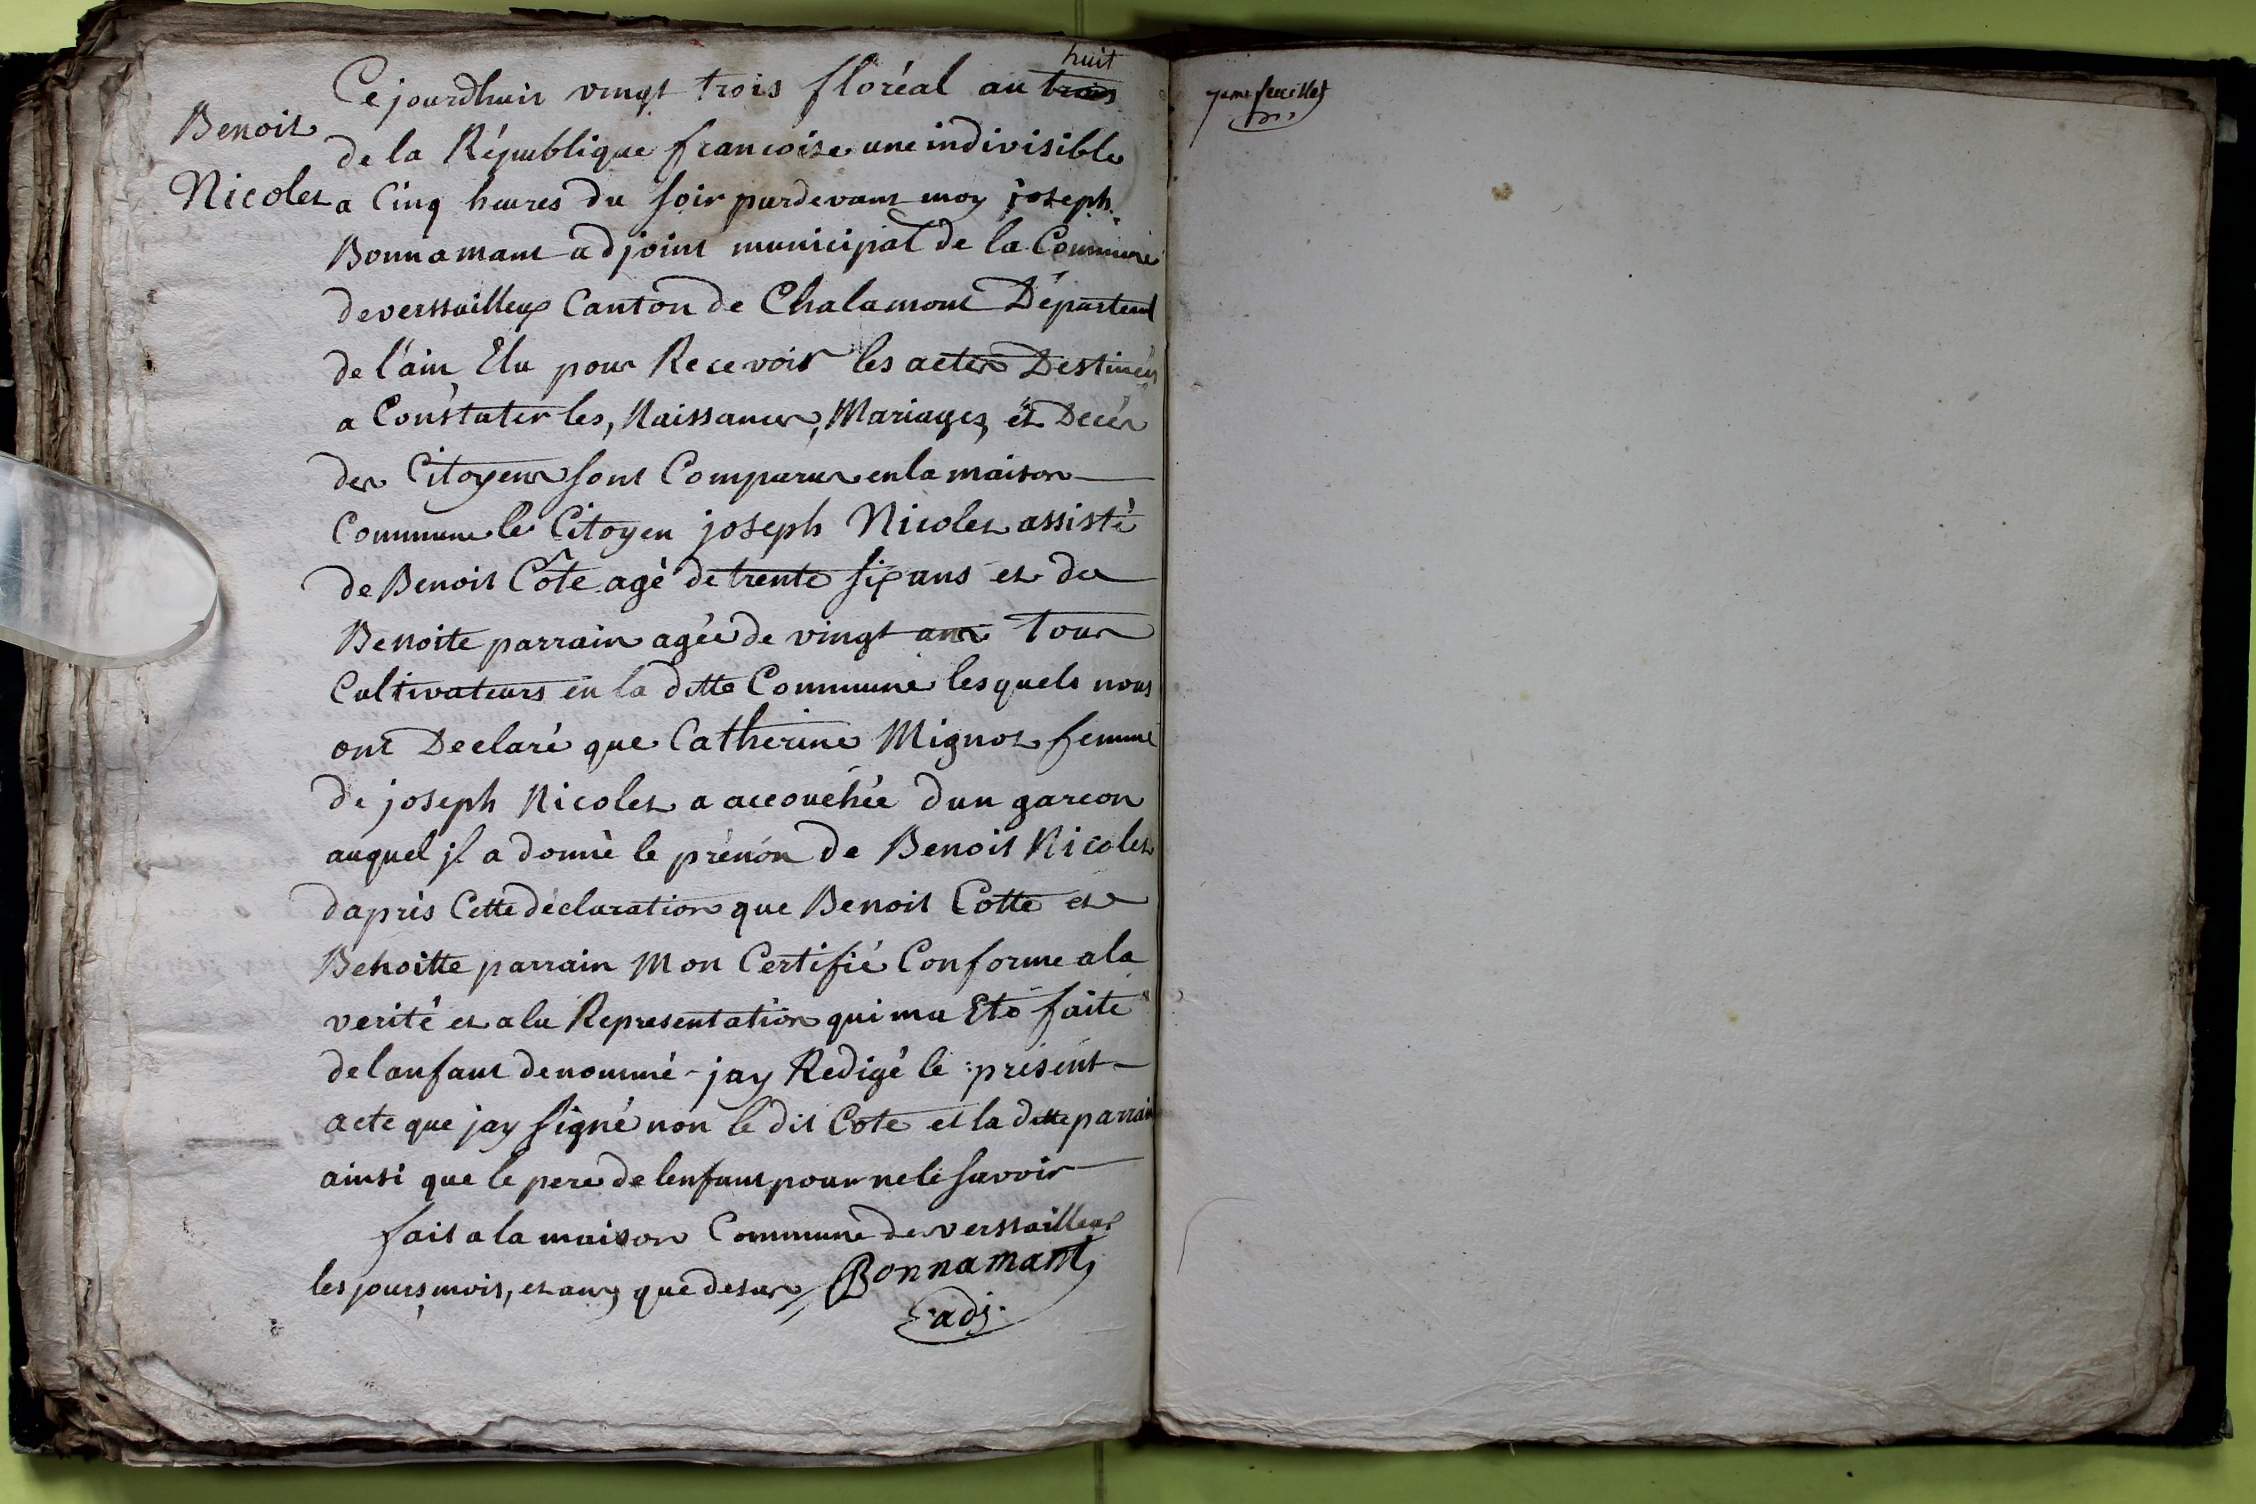 Benoit
Nicolet
huit
Ce jourdhuit vingt trois floréal an trois
de la République francoise une indivisible
a Cinq heures du soir pardevant moy joseph
Bonnamant adjoint municipal de la Commune
de verssailleux Canton de Chalamont Département
de l'ain Elu pour Recevoir les actes Destinées
a Constater les, Naissances, Mariages, et Decés
des Citoyens sont Comparus en la maison
Commune le Citoyen joseph Nicolet assisté
de Benoit Côte agé de trente six ans et de
Benoite parrain agée de vingt ans Tous
Cultivateurs en la ditte Commune lesquels nous
ont Declaré que Catherine Mignot femme
de joseph Nicolet a accouchée dun garcon
auquel jl a donné le prénon de Benoit Nicolet
dapris Cette déclaration que Benoit Cotte et
Benoitte parrain Mon Certifié Conforme a la
verité et a la Representation qui ma Eté faite
de lanfant denommé - jay Redigé le présent
acte que jay signé non le dit Cote et la ditte parrain
ainsi que le pere de lenfant pour ne le savoir
fait a la maison Commune de verssailleux
les jours mois, et ans, que desus Bonnamant
adj.
7eme feuillet